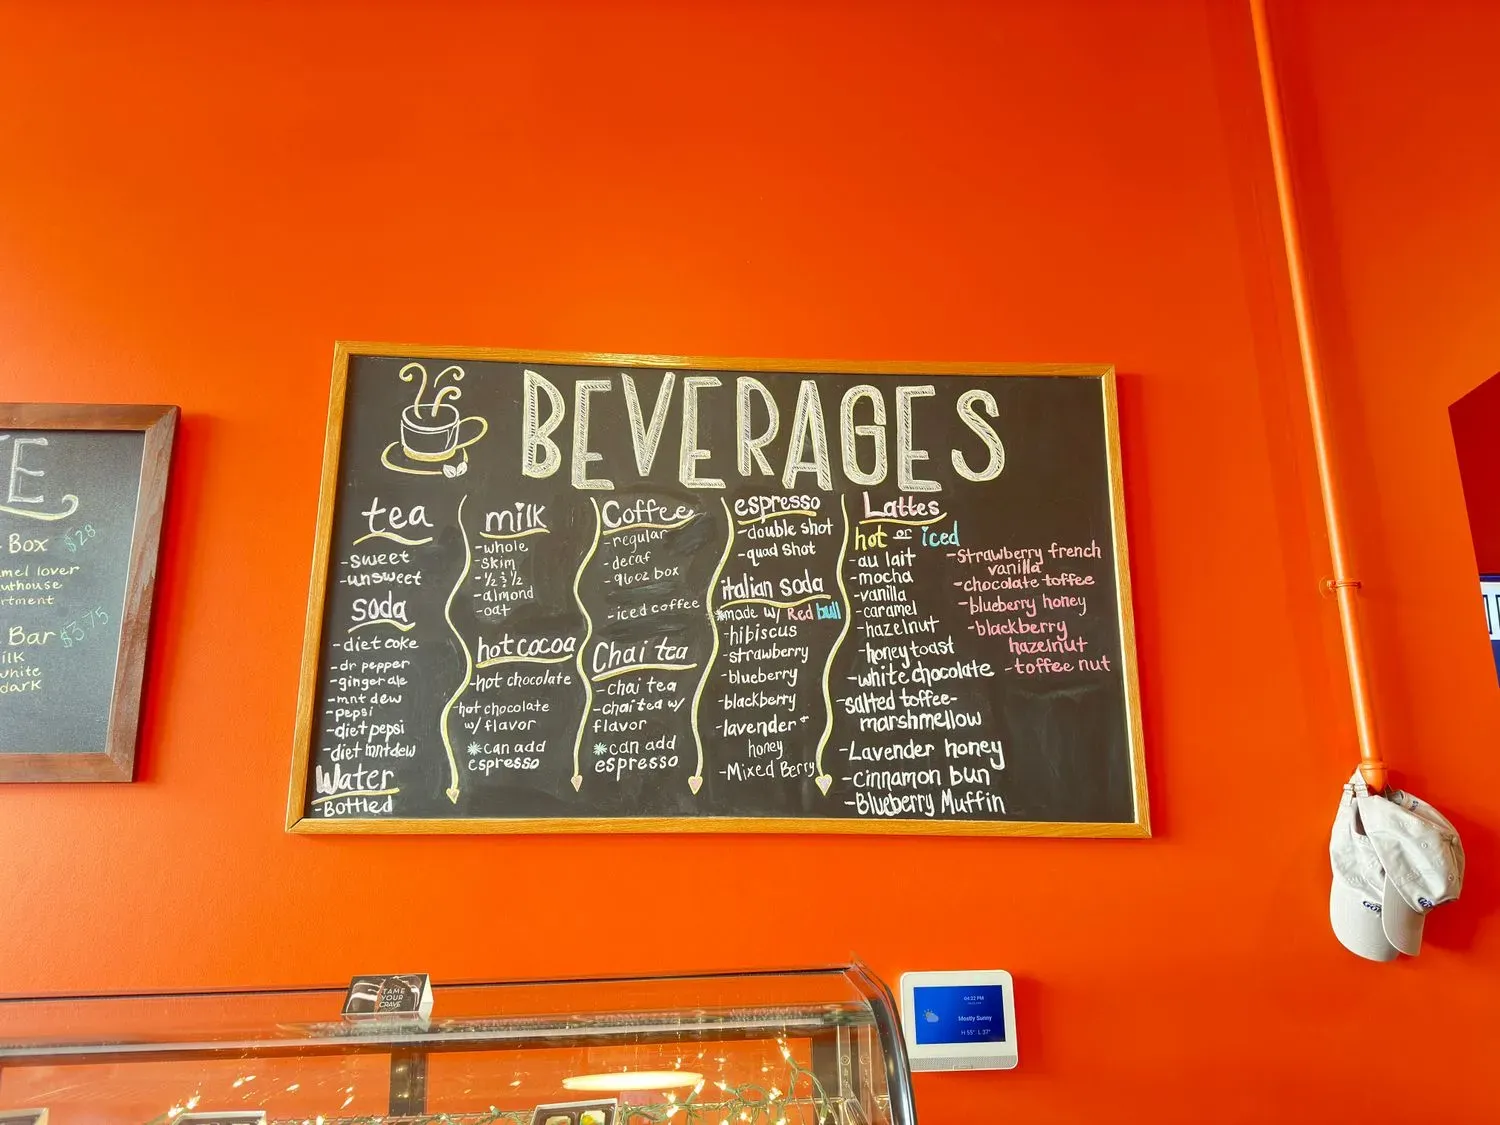 E
Box $28
mel lover
uthouse
rtment
Bar $3.75
ilk
white
dark
BEVERAGES
tea
-sweet
-unsweet
soda
-diet coke
-dr pepper
-ginger ale
-mnt dew
-pepsi
-diet pepsi
-diet mntdew
Water
-Bottled
milk
-whole
-skim
-½ & ½
-almond
-oat
hot cocoa
-hot chocolate
-hot chocolate
w/ flavor
*can add
espresso
Coffee
-regular
-decaf
-96oz box
-iced coffee
Chai tea
-chai tea
-chai tea w/
flavor
*can add
espresso
espresso
-double shot
-quad shot
italian soda
*made w/ Red bull
-hibiscus
-strawberry
-blueberry
-blackberry
-lavender +
honey
-Mixed Berry
Lattes
hot or iced
-au lait
-mocha
-vanilla
-caramel
-hazelnut
-honey toast
-white chocolate
-salted toffee-
marshmellow
-Lavender honey
-cinnamon bun
-Blueberry Muffin
-strawberry french
vanilla
-chocolate toffee
-blueberry honey
-blackberry
hazelnut
-toffee nut
TAME
YOUR
CRAVE
04:22 PM
Mostly Sunny
H 55° L 37°